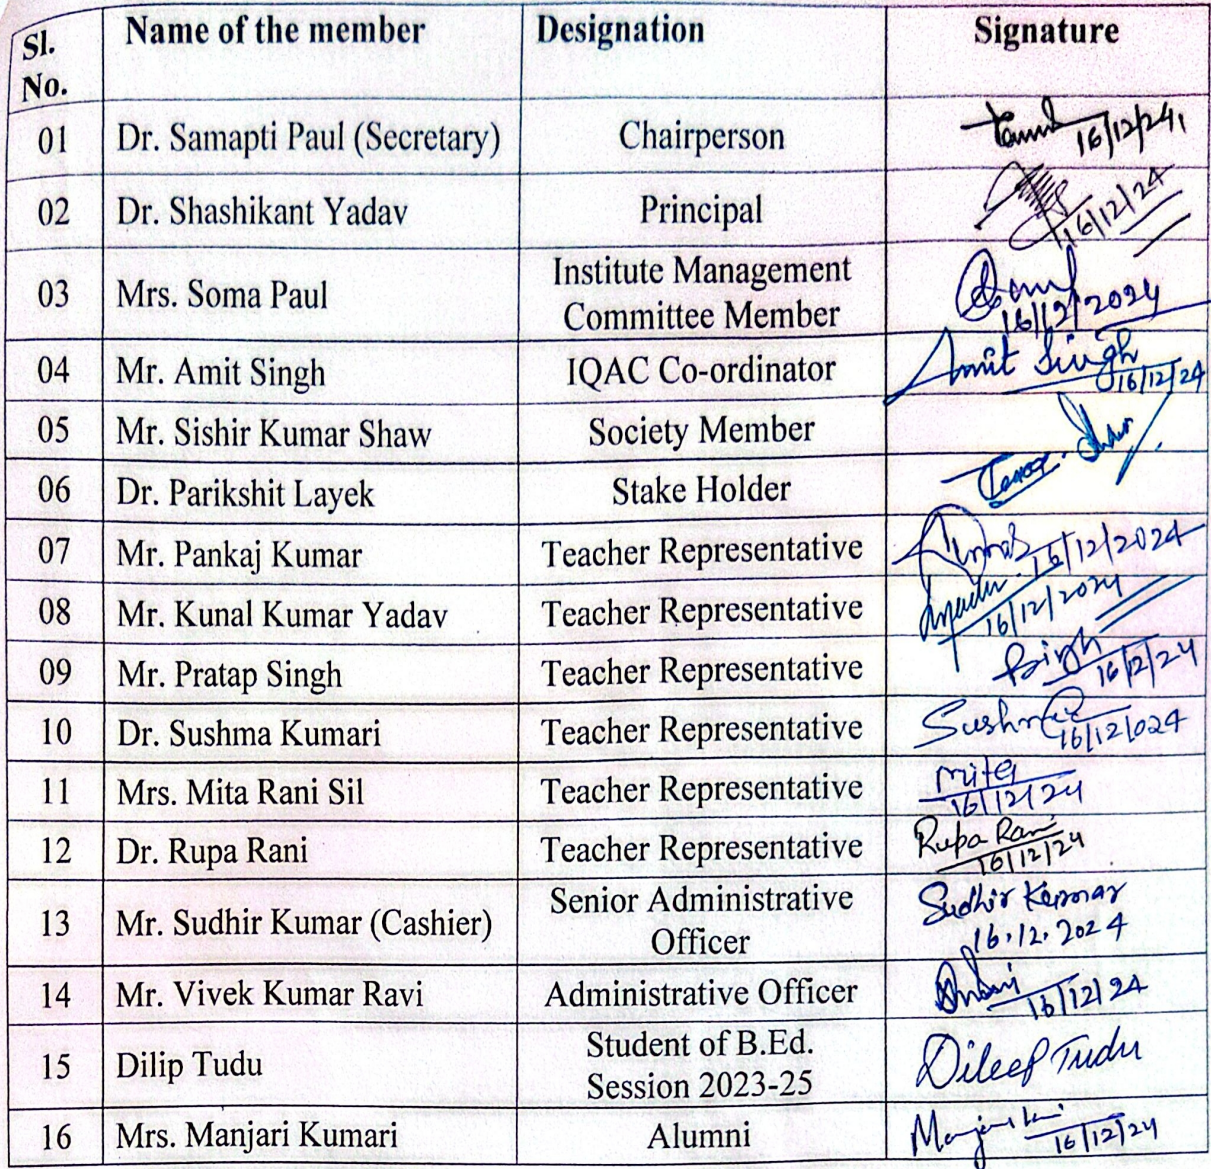 Sl. No. Name of the member Designation Signature
01 Dr. Samapti Paul (Secretary) Chairperson 16/12/24
02 Dr. Shashikant Yadav Principal 16/12/24
03 Mrs. Soma Paul Institute Management Committee Member 16/12/2024
04 Mr. Amit Singh IQAC Co-ordinator Amit Singh 16/12/24
05 Mr. Sishir Kumar Shaw Society Member
06 Dr. Parikshit Layek Stake Holder
07 Mr. Pankaj Kumar Teacher Representative 16/12/2024
08 Mr. Kunal Kumar Yadav Teacher Representative 16/12/2024
09 Mr. Pratap Singh Teacher Representative 16/12/24
10 Dr. Sushma Kumari Teacher Representative 16/12/024
11 Mrs. Mita Rani Sil Teacher Representative Mita 16/12/24
12 Dr. Rupa Rani Teacher Representative Rupa Rani 16/12/24
13 Mr. Sudhir Kumar (Cashier) Senior Administrative Officer Sudhir Kumar 16.12.2024
14 Mr. Vivek Kumar Ravi Administrative Officer 16/12/24
15 Dilip Tudu Student of B.Ed. Session 2023-25 Dileep Tudu
16 Mrs. Manjari Kumari Alumni 16/12/24